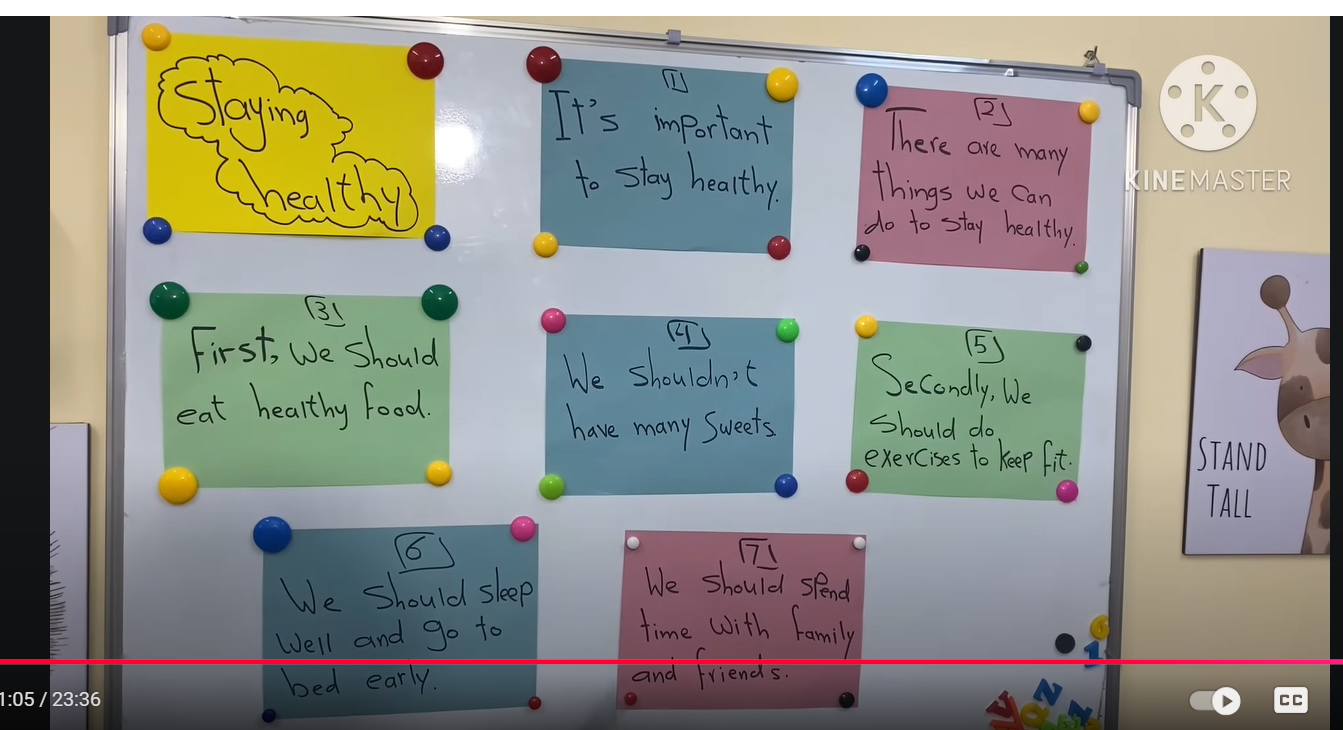 Staying
healthy
1
It's important
to stay healthy.
2
There are many
things we can
do to stay healthy.
3
First, we should
eat healthy food.
4
We shouldn't
have many sweets.
5
Secondly, we
should do
exercises to keep fit.
6
We should sleep
well and go to
bed early.
7
We should spend
time with family
and friends.
K
KINEMASTER
STAND
TALL
1:05 / 23:36
CC